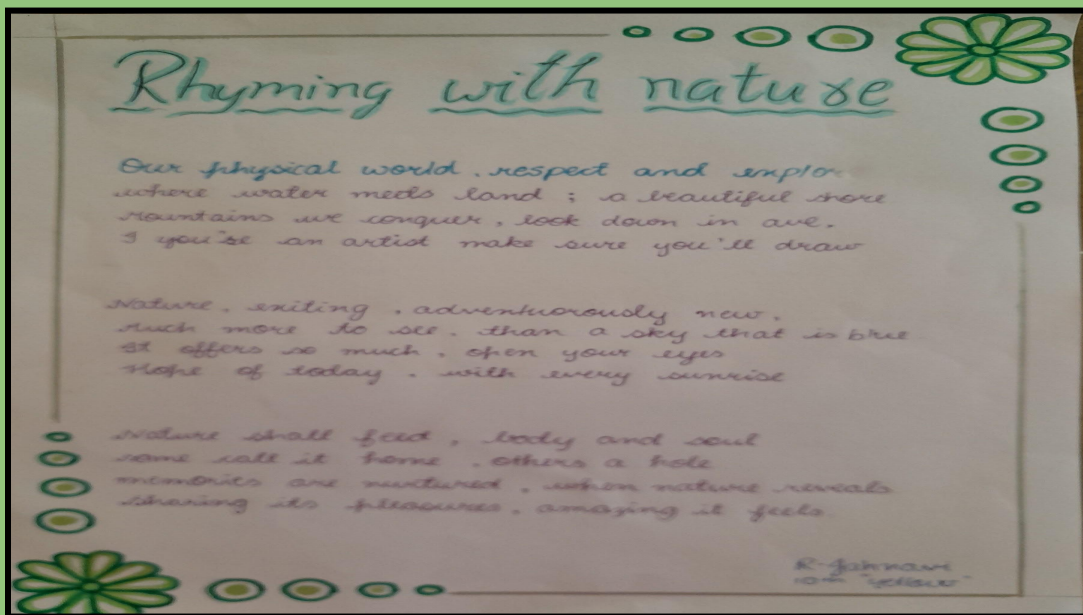 Rhyming with nature
Our physical world, respect and explor
where water meets land ; a beautiful shore
Mountains we conquer, look down in awe.
I you're an artist make sure you'll draw
Nature, exiting, adventuorously new,
Much more to see, than a sky that is blue
It offers so much, open your eyes
Hope of today, with every sunrise
Nature shall feed, body and soul
some call it home, others a hole
memories are nurtured, when nature reveals
sharing its pleasures, amazing it feels.
R. Jahnavi
10th "yellow"